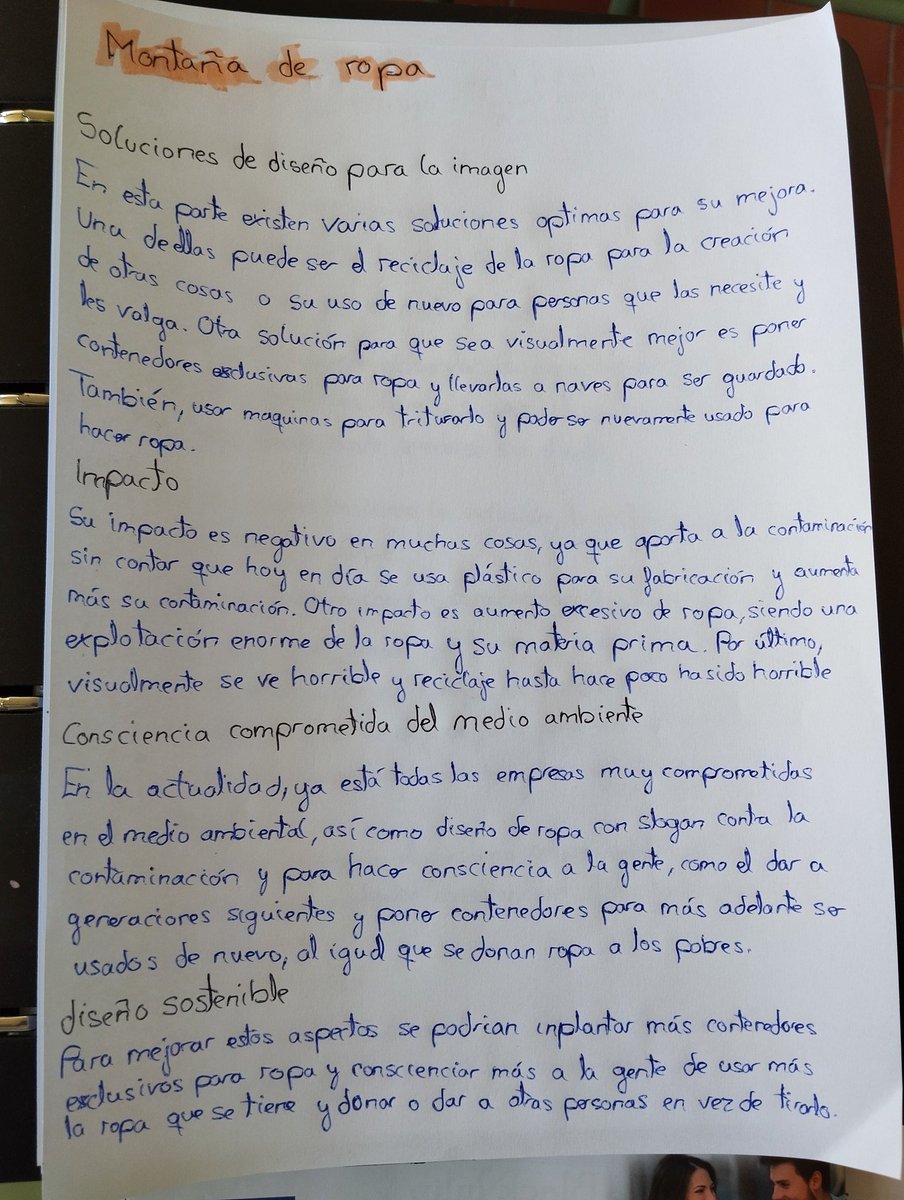 Montaña de ropa
Soluciones de diseño para la imagen
En esta parte existen varias soluciones optimas para su mejora.
Una de ellas puede ser el reciclaje de la ropa para la creación
de otras cosas o su uso de nuevo para personas que las necesite y
les valga. Otra solución para que sea visualmente mejor es poner
contenedores esclusivas para ropa y llevarlas a naves para ser guardado.
También, usar maquinas para triturarlo y poder ser nuevamente usado para
hacer ropa.
Impacto
Su impacto es negativo en muchas cosas, ya que aporta a la contaminación
sin contar que hoy en día se usa plástico para su fabricación y aumenta
más su contaminación. Otro impacto es aumento excesivo de ropa, siendo una
explotación enorme de la ropa y su matria prima. Por último,
visualmente se ve horrible y reciclaje hasta hace poco ha sido horrible
Consciencia comprometida del medio ambiente
En la actualidad, ya está todas las empresas muy comprometidas
en el medio ambiental, así como diseño de ropa con slogan contra la
contaminación y para hacer consciencia a la gente, como el dar a
generaciones siguientes y poner contenedores para más adelante ser
usados de nuevo, al igual que se donan ropa a los pobres.
diseño sostenible
Para mejorar estos aspertos se podrian inplantar más contenedores
esclusivos para ropa y conscienciar más a la gente de usar más
la ropa que se tiene y donar o dar a otras personas en vez de tirarlo.